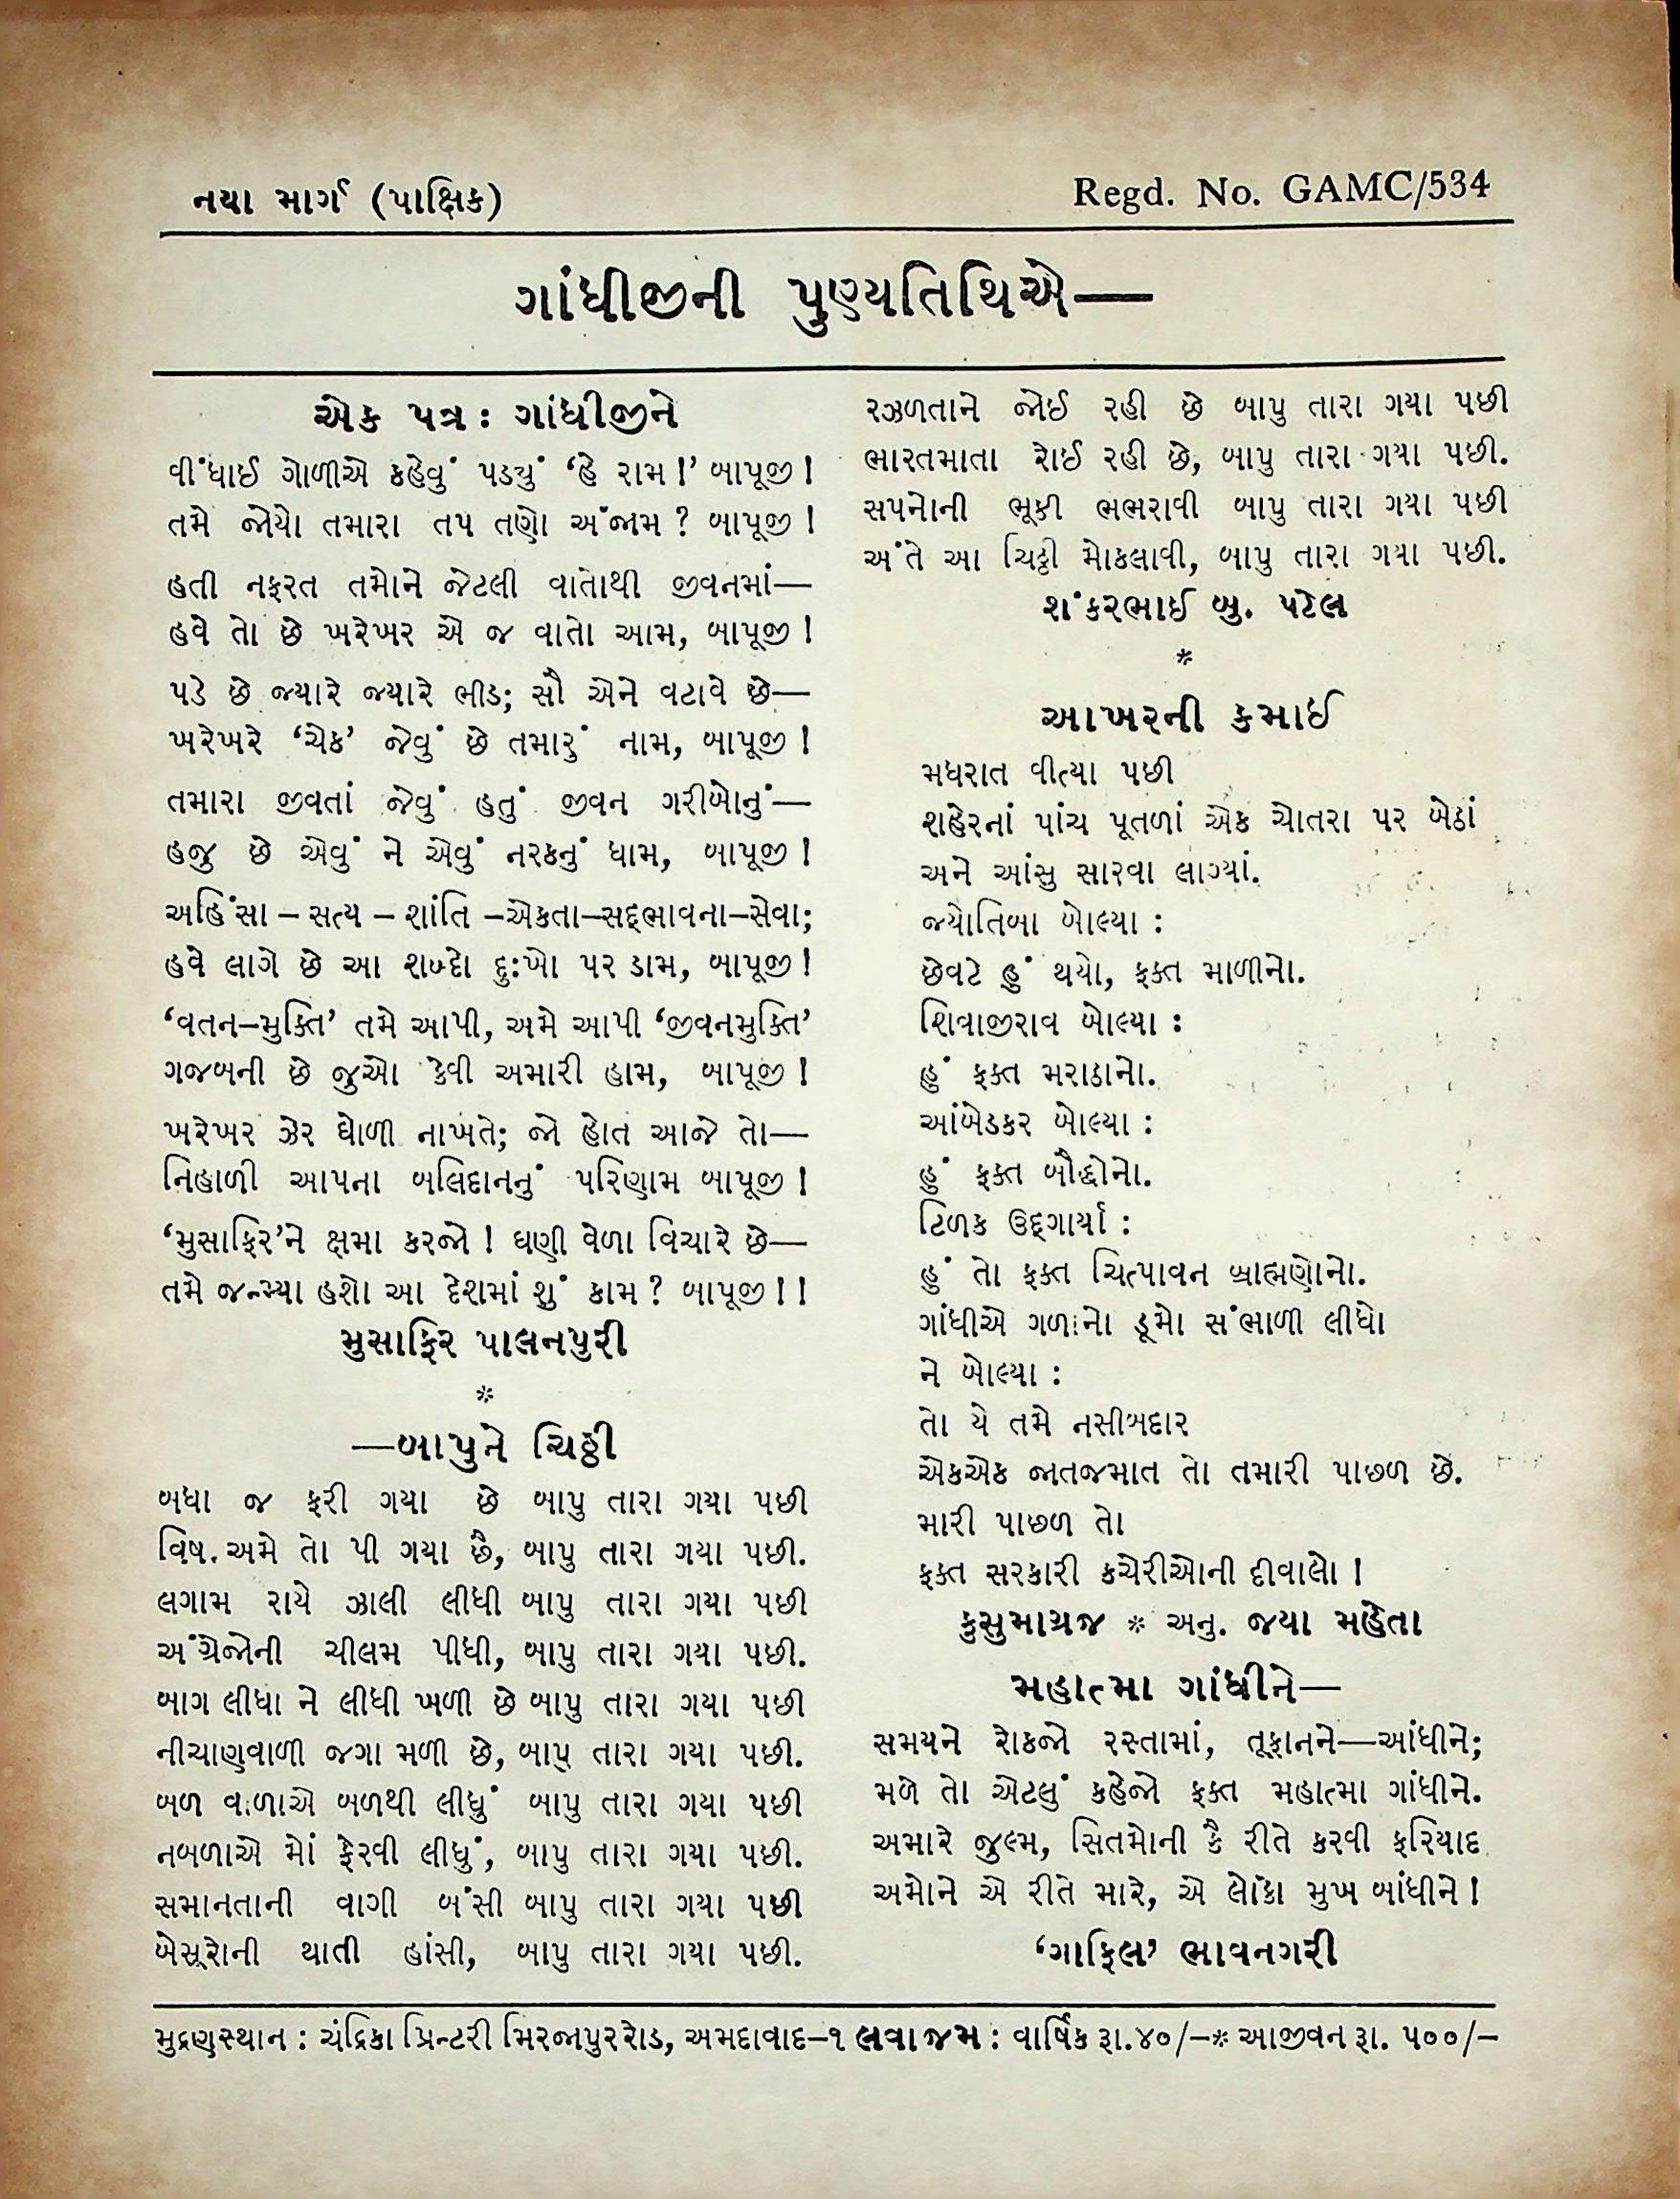 નયા માર્ગ (પાક્ષિક)
Regd. No. GAMC/534
ગાંધીજીની પુણ્યતિથિએ—
એક પત્ર : ગાંધીજીને
વીંધાઈ ગોળીએ કહેવું પડ્યું ‘હે રામ !’ બાપૂજી !
તમે જોયો તમારા તપ તણો અંજામ ? બાપૂજી !
હતી નફરત તમોને જેટલી વાતોથી જીવનમાં—
હવે તો છે ખરેખર એ જ વાતો આમ, બાપૂજી !
પડે છે જ્યારે જ્યારે ભીડ; સૌ એને વટાવે છે—
ખરેખરે ‘ચેક’ જેવું છે તમારું નામ, બાપૂજી !
તમારા જીવતાં જેવું હતું જીવન ગરીબોનું—
હજુ છે એવું ને એવું નરકનું ધામ, બાપૂજી !
અહિંસા – સત્ય – શાંતિ –એકતા–સદ્દભાવના–સેવા;
હવે લાગે છે આ શબ્દો દુઃખો પર ડામ, બાપૂજી !
‘વતન–મુક્તિ’ તમે આપી, અમે આપી ‘જીવનમુક્તિ’
ગજબની છે જુઓ કેવી અમારી હામ, બાપૂજી !
ખરેખર ઝેર ઘોળી નાખતે; જો હોત આજે તો—
નિહાળી આપના બલિદાનનું પરિણામ બાપૂજી !
‘મુસાફિર’ને ક્ષમા કરજો ! ઘણી વેળા વિચારે છે—
તમે જન્મ્યા હશો આ દેશમાં શું કામ ? બાપૂજી ! !
મુસાફિર પાલનપુરી
*
—બાપુને ચિઠ્ઠી
બધા જ ફરી ગયા છે બાપુ તારા ગયા પછી
વિષ. અમે તો પી ગયા છૈ, બાપુ તારા ગયા પછી.
લગામ રાયે ઝાલી લીધી બાપુ તારા ગયા પછી
અંગ્રેજોની ચીલમ પીધી, બાપુ તારા ગયા પછી.
બાગ લીધા ને લીધી ખળી છે બાપુ તારા ગયા પછી
નીચાણવાળી જગા મળી છે, બાપુ તારા ગયા પછી.
બળ વાળાએ બળથી લીધું બાપુ તારા ગયા પછી
નબળાએ મોં ફેરવી લીધું, બાપુ તારા ગયા પછી.
સમાનતાની વાગી બંસી બાપુ તારા ગયા પછી
બેસૂરોની થાતી હાંસી, બાપુ તારા ગયા પછી.
રઝળતાને જોઈ રહી છે બાપુ તારા ગયા પછી
ભારતમાતા રોઈ રહી છે, બાપુ તારા ગયા પછી.
સપનોની ભૂકી ભભરાવી બાપુ તારા ગયા પછી
અંતે આ ચિઠ્ઠી મોકલાવી, બાપુ તારા ગયા પછી.
શંકરભાઈ બુ. પટેલ
*
આખરની કમાઈ
મધરાત વીત્યા પછી
શહેરનાં પાંચ પૂતળાં એક ચોતરા પર બેઠાં
અને આંસુ સારવા લાગ્યાં.
જ્યોતિબા બોલ્યા :
છેવટે હું થયો, ફક્ત માળીનો.
શિવાજીરાવ બોલ્યા :
હું ફક્ત મરાઠાનો.
આંબેડકર બોલ્યા :
હું ફક્ત બૌદ્ધોનો.
ટિળક ઉદ્દગાર્યા :
હું તો ફક્ત ચિત્પાવન બ્રાહ્મણોનો.
ગાંધીએ ગળાનો ડૂમો સંભાળી લીધો
ને બોલ્યા :
તો યે તમે નસીબદાર
એકએક જાતજમાત તો તમારી પાછળ છે.
મારી પાછળ તો
ફક્ત સરકારી કચેરીઓની દીવાલો !
કુસુમાગ્રજ * અનુ. જયા મહેતા
મહાત્મા ગાંધીને—
સમયને રોકજો રસ્તામાં, તૂફાનને—આંધીને;
મળે તો એટલું કહેજો ફક્ત મહાત્મા ગાંધીને.
અમારે જુલ્મ, સિતમોની કૈ રીતે કરવી ફરિયાદ
અમોને એ રીતે મારે, એ લોકો મુખ બાંધીને !
‘ગાફિલ’ ભાવનગરી
મુદ્રણસ્થાન : ચંદ્રિકા પ્રિન્ટરી મિરજાપુરરોડ, અમદાવાદ–૧ લવાજમ : વાર્ષિક રૂા.૪૦/–* આજીવન રૂા. ૫૦૦/–